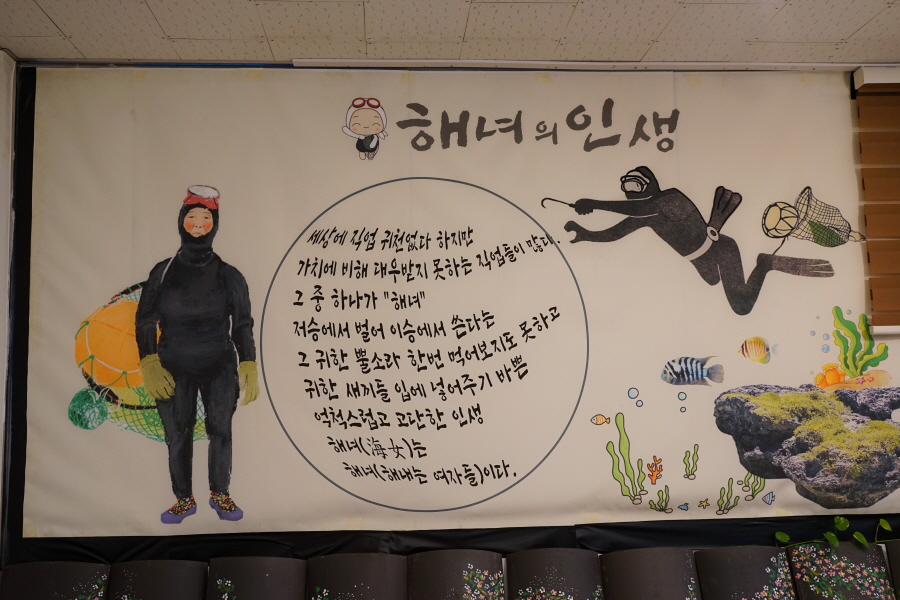 해녀의 인생
세상에 직업 귀천없다 하지만
가치에 비해 대우받지 못하는 직업들이 많다.
그 중 하나가 "해녀"
저승에서 벌어 이승에서 쓴다는
그 귀한 뿔소라 한번 먹어보지도 못하고
귀한 새끼들 입에 넣어주기 바쁜
억척스럽고 고단한 인생
해녀(海女)는
해녀(해내는 여자들)이다.